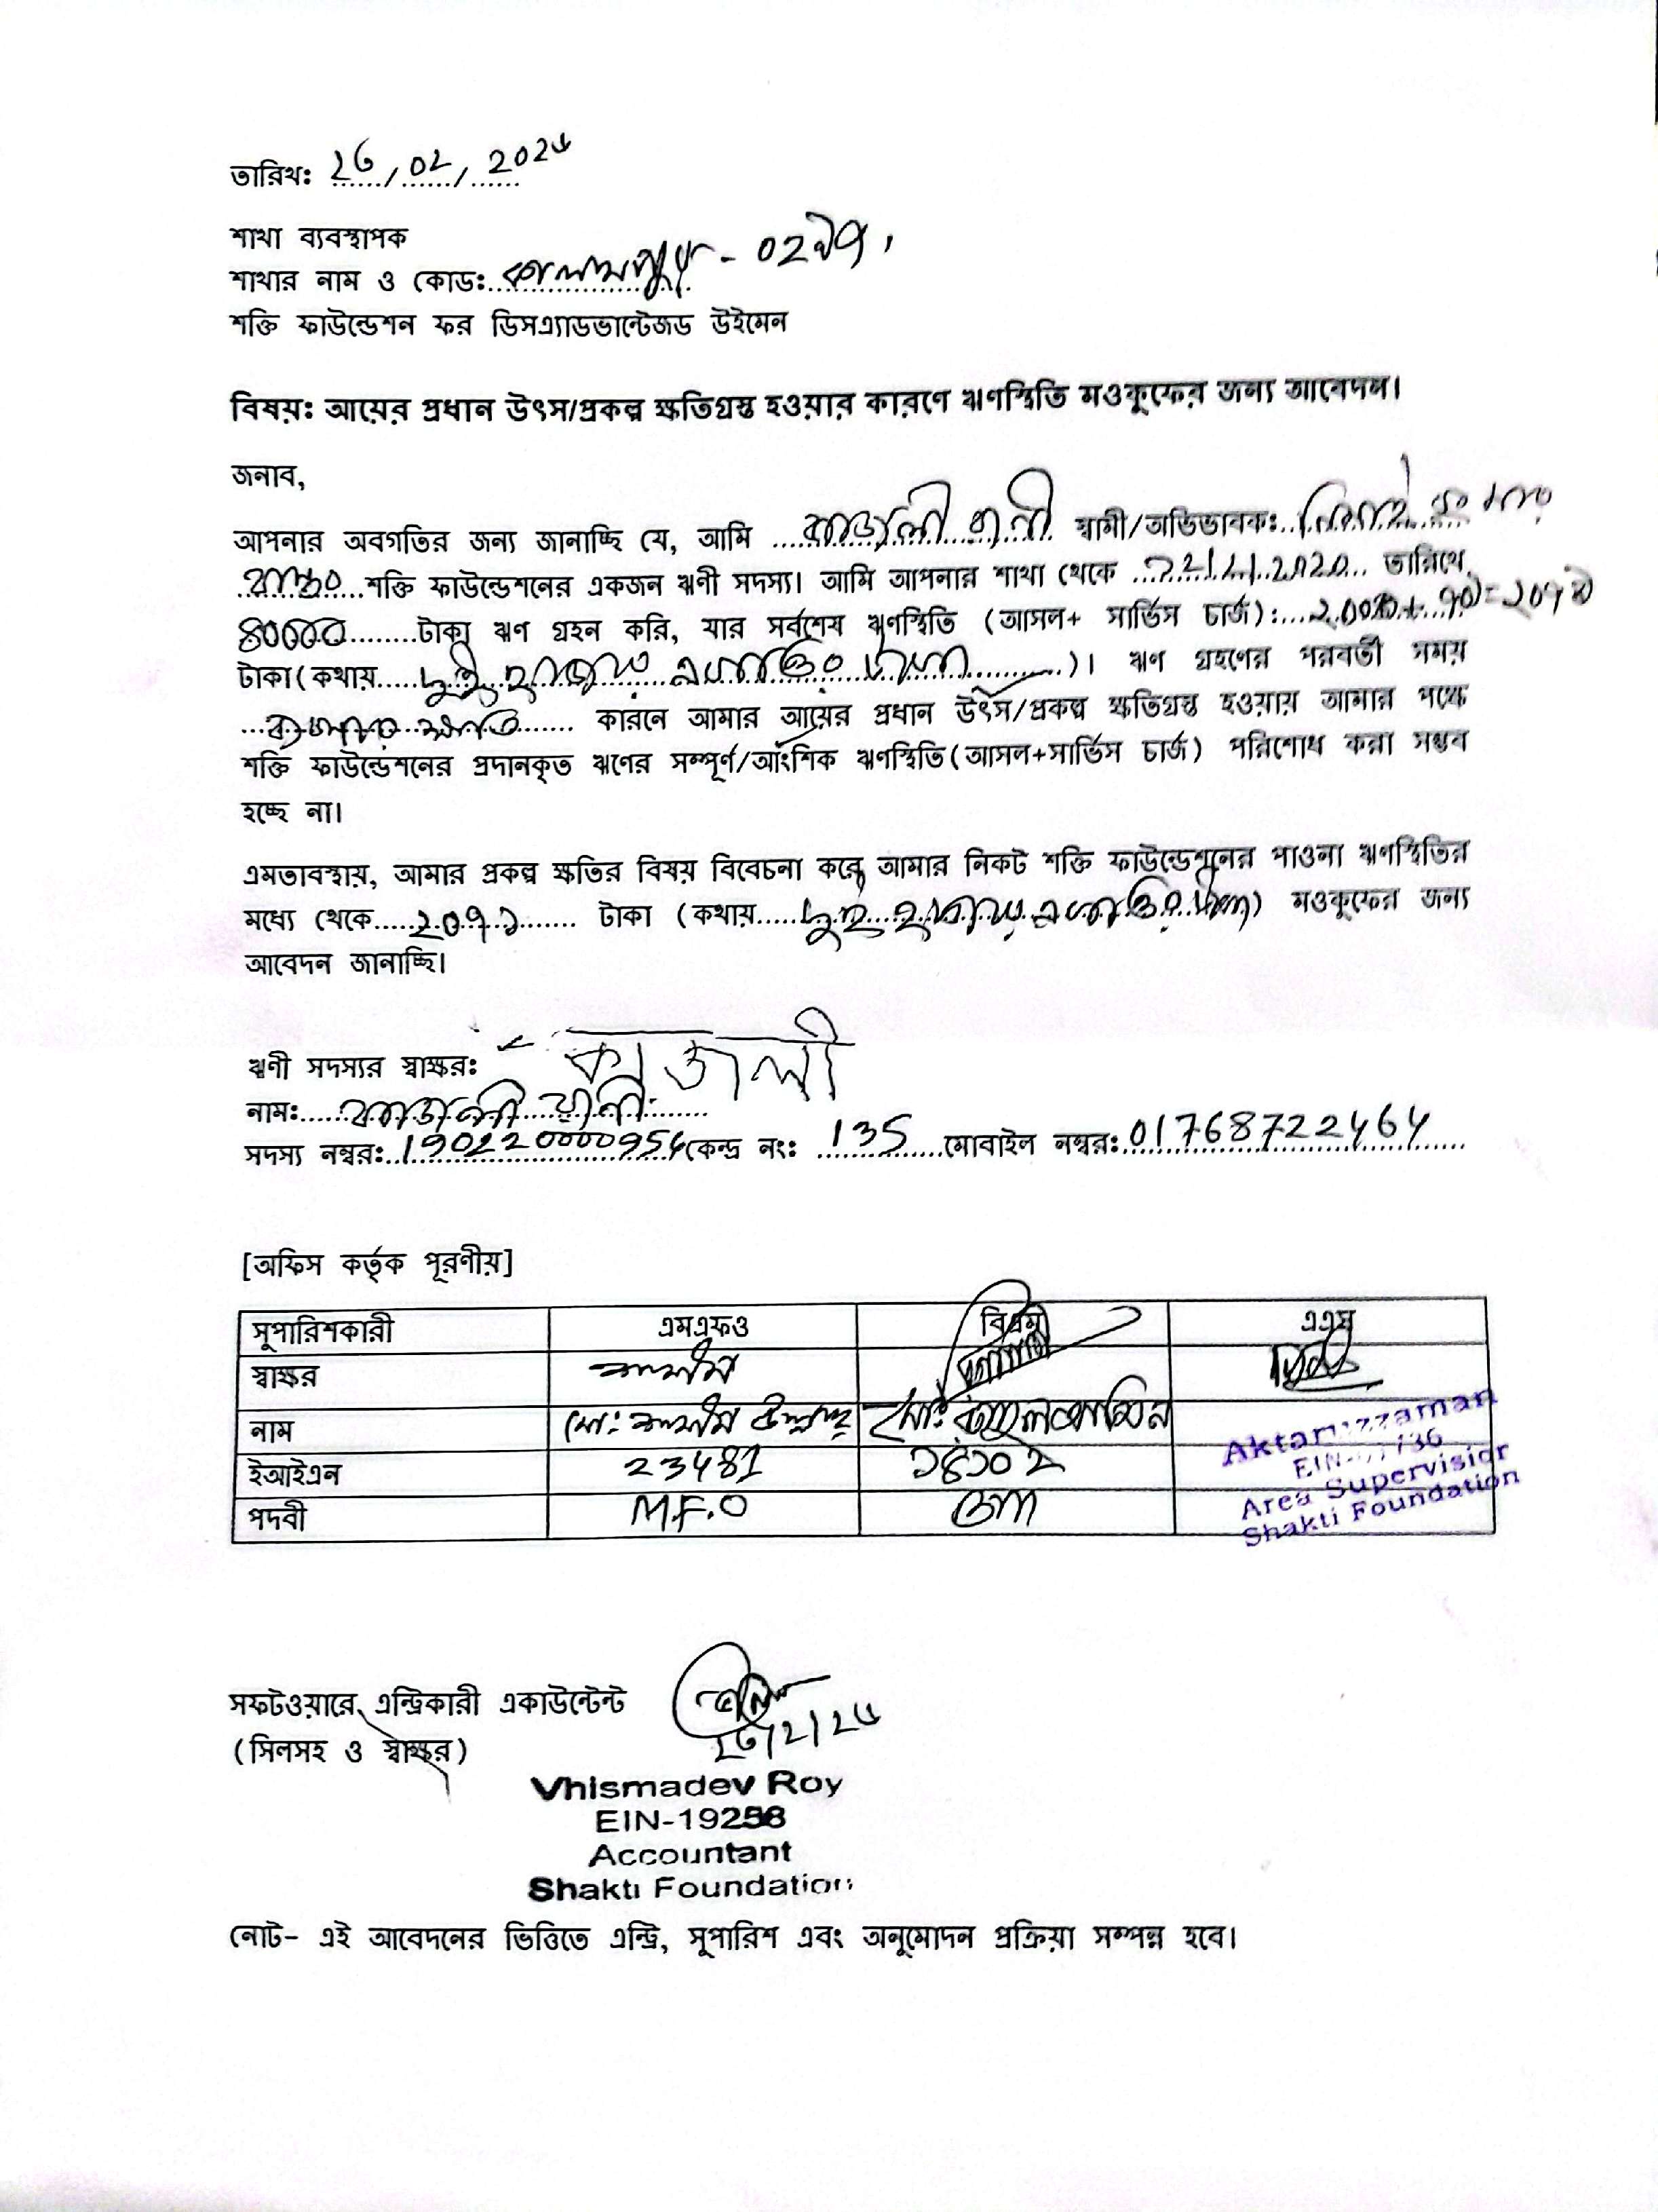 তারিখ: 26/02/2025
শাখা ব্যবস্থাপক
শাখার নাম ও কোড:
শক্তি ফাউন্ডেশন ফর ডিসএ্যাডভান্টেজড উইমেন
বিষয়: আয়ের প্রধান উৎস/প্রকল্প ক্ষতিগ্রস্ত হওয়ার কারণে ঋণস্থিতি মওকুফের জন্য আবেদন।
জনাব,
আপনার অবগতির জন্য জানাচ্ছি যে, আমি কাজলী রানী স্বামী/অভিভাবক:
শক্তি ফাউন্ডেশনের একজন ঋণী সদস্য। আমি আপনার শাখা থেকে তারিখে
80000 টাকা ঋণ গ্রহন করি, যার সর্বশেষ ঋণস্থিতি (আসল+ সার্ভিস চার্জ):
টাকা (কথায় দুই হাজার একাত্তর টাকা)। ঋণ গ্রহণের পরবর্তী সময়
কারনে আমার আয়ের প্রধান উৎস/প্রকল্প ক্ষতিগ্রস্ত হওয়ায় আমার পক্ষে
শক্তি ফাউন্ডেশনের প্রদানকৃত ঋণের সম্পূর্ণ/আংশিক ঋণস্থিতি (আসল+সার্ভিস চার্জ) পরিশোধ করা সম্ভব
হচ্ছে না।
এমতাবস্থায়, আমার প্রকল্প ক্ষতির বিষয় বিবেচনা করে আমার নিকট শক্তি ফাউন্ডেশনের পাওনা ঋণস্থিতির
মধ্যে থেকে 20৭১ টাকা (কথায় দুই হাজার একাত্তর টাকা) মওকুফের জন্য
আবেদন জানাচ্ছি।
ঋণী সদস্যর স্বাক্ষর: কাজলী
নাম: কাজলী রানী
সদস্য নম্বর: 190220000954 কেন্দ্র নং: 135 মোবাইল নম্বর: 01768722464
[অফিস কর্তৃক পূরণীয়]
সুপারিশকারী এমএফও বিএম এএস
স্বাক্ষর
নাম মো:
ইআইএন 23481 ১৪১০২
পদবী M.F.O BM
Aktaruzzaman
Area Supervisior
Shakti Foundation
সফটওয়ারে এন্ট্রিকারী একাউন্টেন্ট
(সিলসহ ও স্বাক্ষর)
Vhismadev Roy
EIN-19258
Accountant
Shakti Foundation
নোট- এই আবেদনের ভিত্তিতে এন্ট্রি, সুপারিশ এবং অনুমোদন প্রক্রিয়া সম্পন্ন হবে।